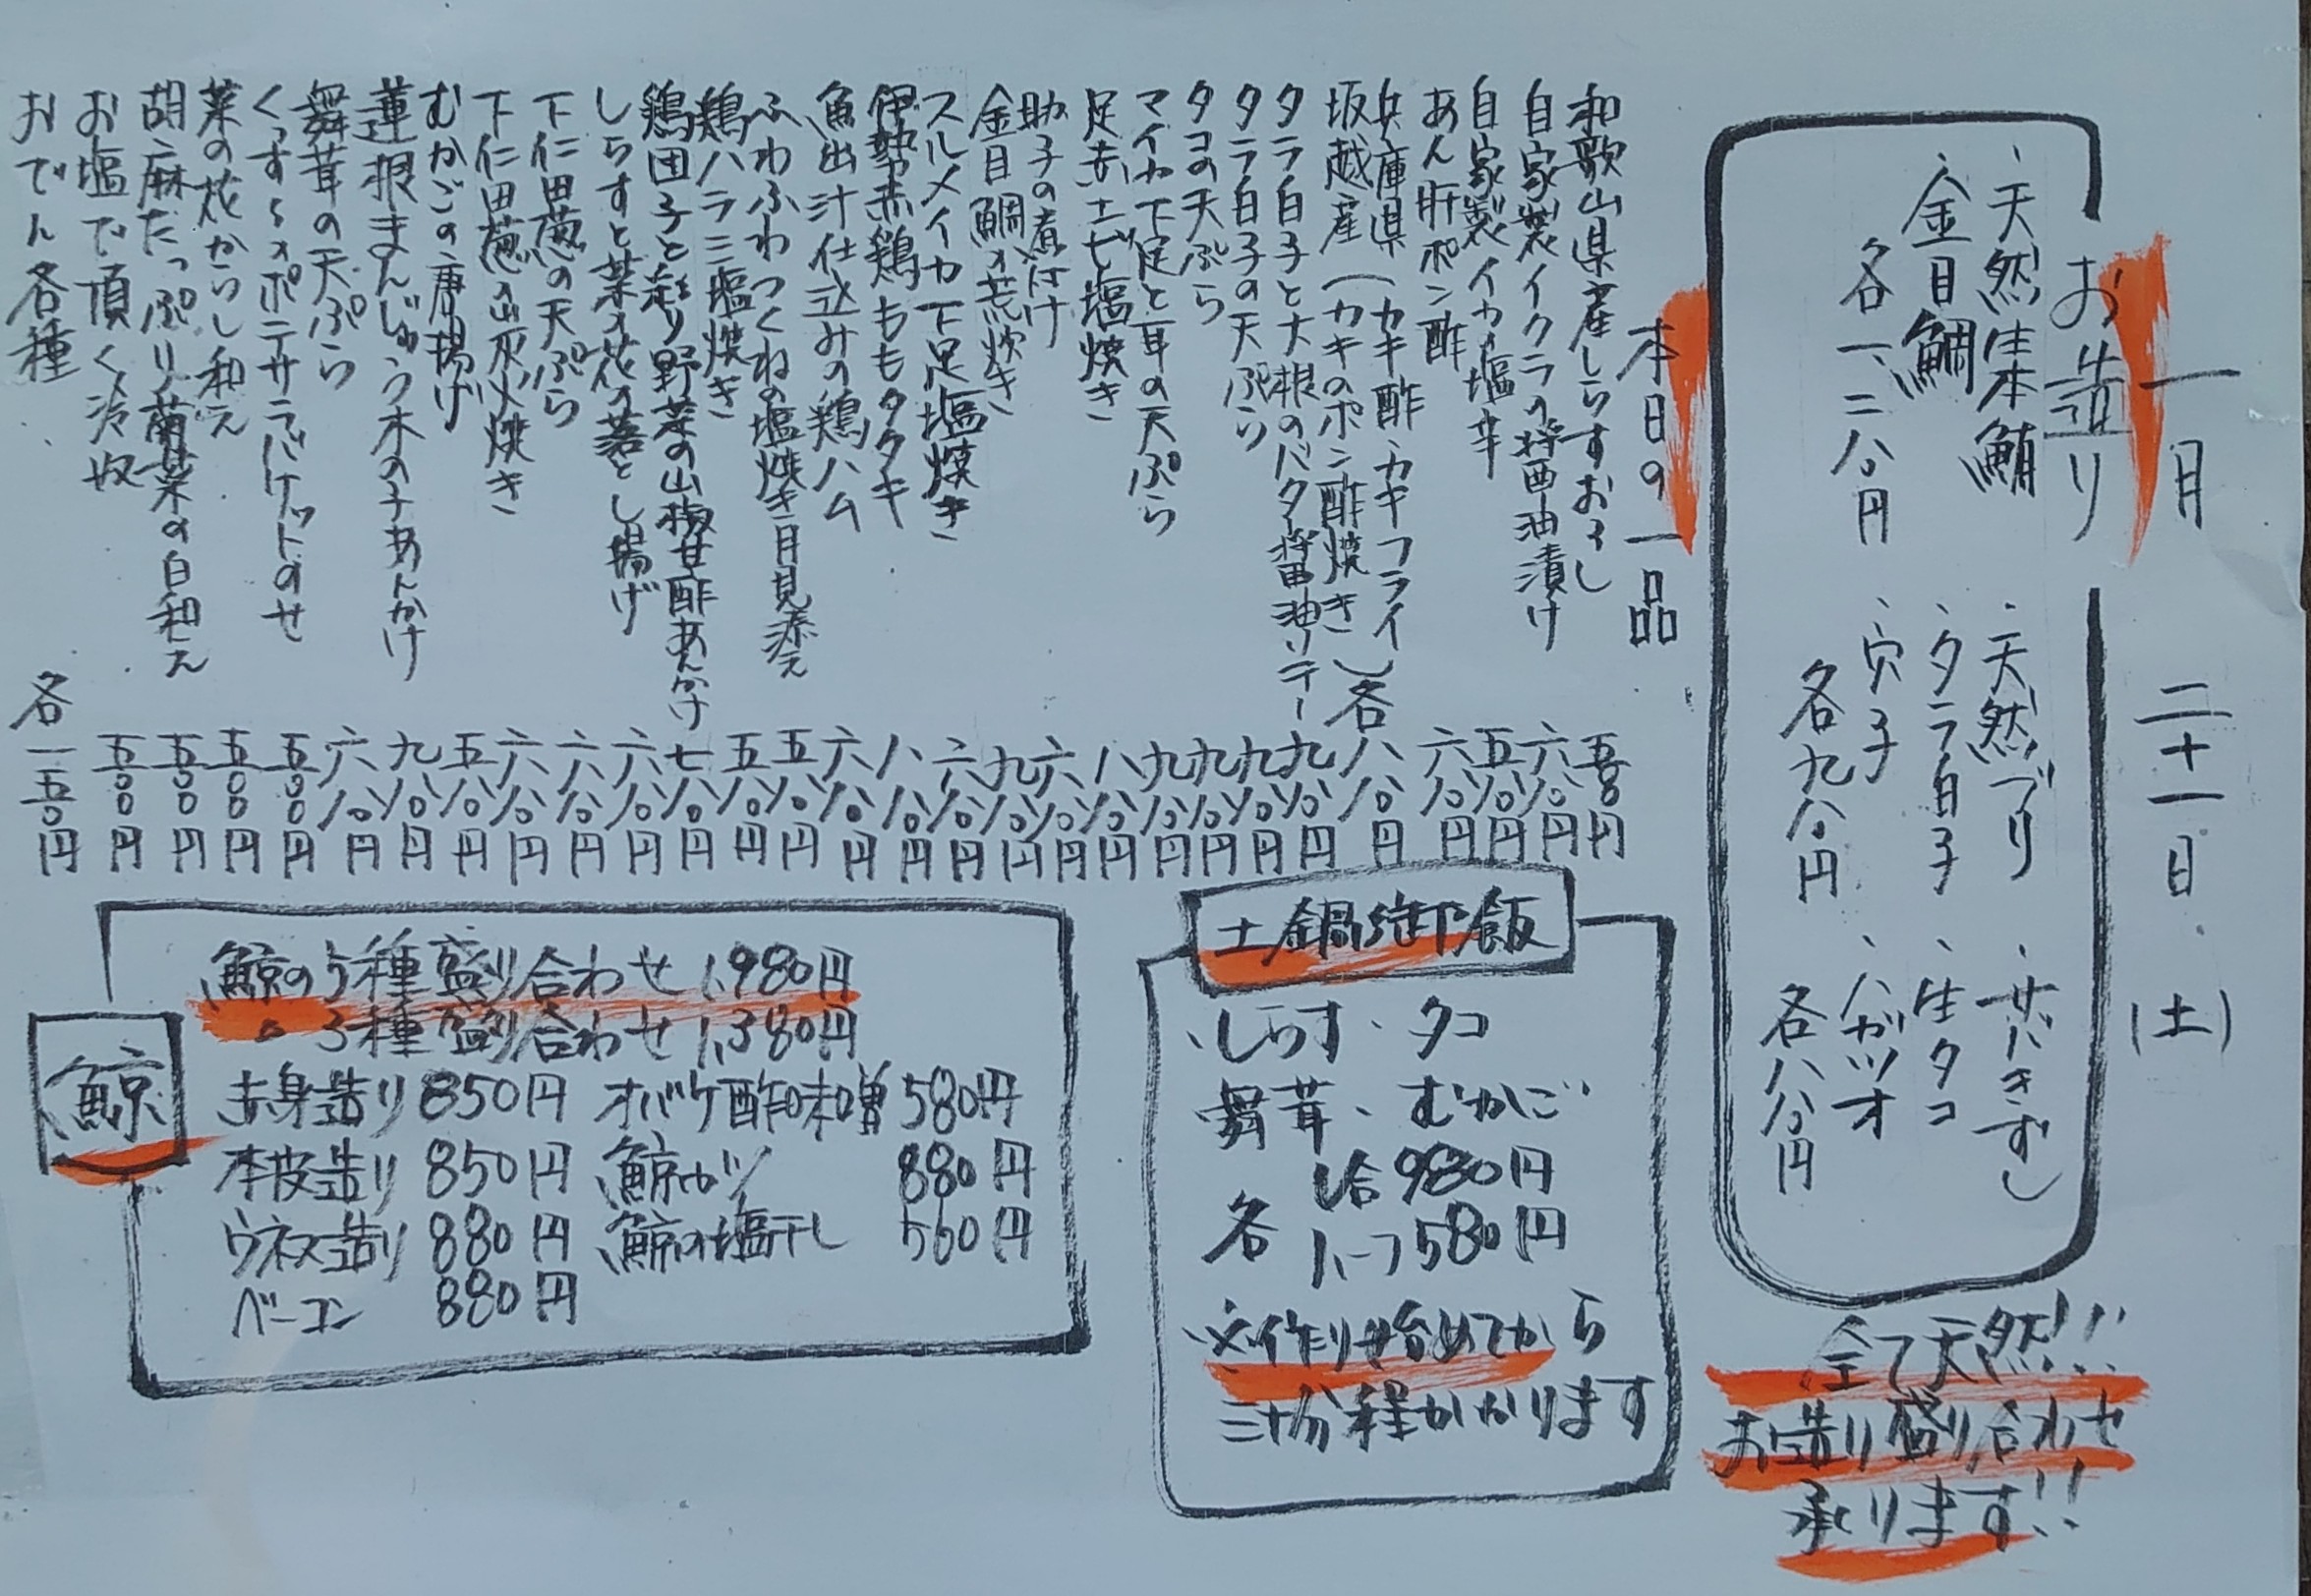 一月 二十一日 (土)
お造り
・天然生本鮪
・金目鯛
各一、二八〇円
・天然ブリ
・タラ白子
・穴子
各九八〇円
・サバきずし
・生タコ
・ハガツオ
各八八〇円
全て天然!!
お造り盛り合わせ
承ります!!
本日の一品
和歌山県産しらすおろし 五〇〇円
自家製イクラの醤油漬け 六八〇円
自家製イカの塩辛 五八〇円
あん肝ポン酢 六八〇円
兵庫県 坂越産 (カキ酢・カキフライ カキのポン酢焼き) 各八八〇円
タラ白子と大根のバター醤油ソテー 九八〇円
タラ白子の天ぷら 九八〇円
タコの天ぷら 九八〇円
マイカ下足と耳の天ぷら 九八〇円
足赤エビ塩焼き 八八〇円
助子の煮付け 六八〇円
金目鯛の荒炊き 九八〇円
スルメイカ下足塩焼き 六八〇円
伊勢赤鶏ももタタキ 八八〇円
魚出汁仕込みの鶏ハム 六八〇円
ふわふわつくねの塩焼き月見添え 五八〇円
鶏ハラミ塩焼き 五八〇円
鶏団子と彩り野菜の山椒甘酢あんかけ 七八〇円
しらすと菜の花の落とし揚げ 六八〇円
下仁田葱の天ぷら 六八〇円
下仁田葱の山灰火焼き 六八〇円
むかごの唐揚げ 五八〇円
蓮根まんじゅう木の子あんかけ 九八〇円
舞茸の天ぷら 六八〇円
くんすもポテサラバケットのせ 五〇〇円
菜の花からし和え 五〇〇円
胡麻たっぷり菊菜の白和え 五〇〇円
お塩で頂く冷奴 五〇〇円
おでん各種 各一五〇円
土鍋御飯
・しらす・タコ
舞茸・むかご
各 1合 980円
ハーフ580円
※作り始めてから
三十分程かかります
鯨
鯨の5種盛り合わせ 1,980円
〃 3種盛り合わせ 1,380円
赤身造り 850円 オバケ酢味噌 580円
本皮造り 850円 鯨カツ 880円
ウネス造り 880円 鯨の塩干し 560円
ベーコン 880円